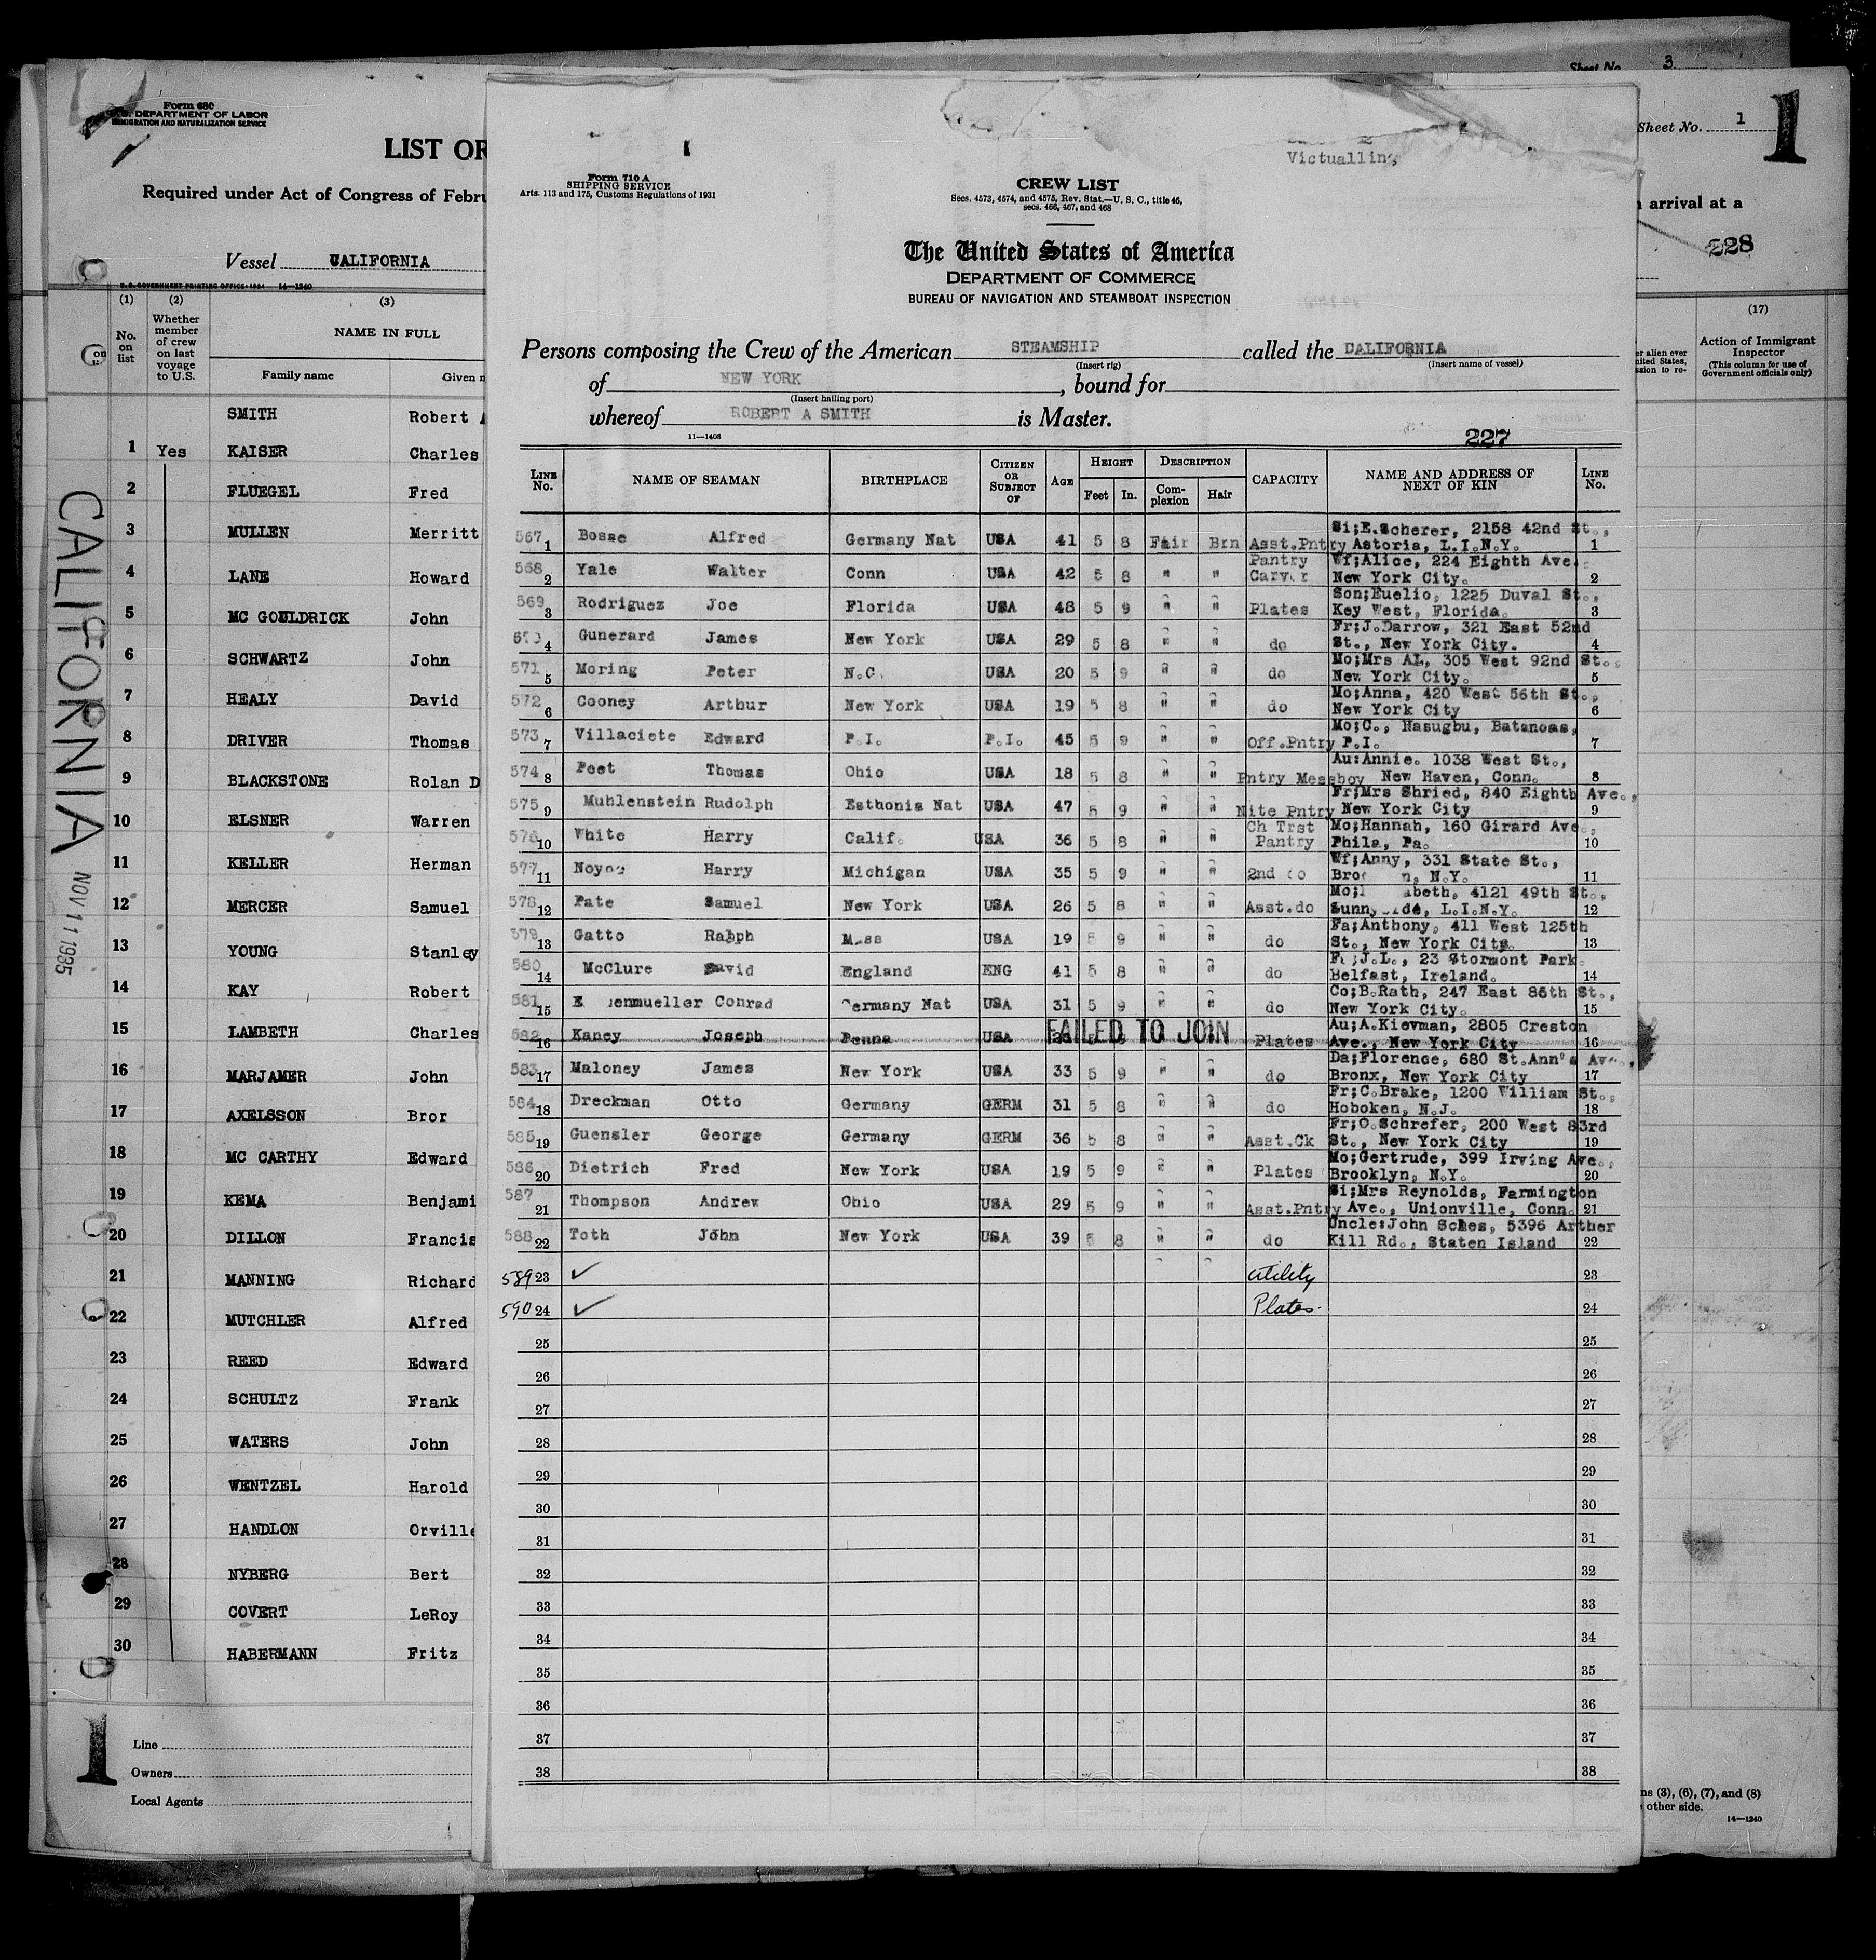 Sheet No. 3
Form 680
U.S. DEPARTMENT OF LABOR
IMMIGRATION AND NATURALIZATION SERVICE
LIST OR
Required under Act of Congress of Febru
Vessel CALIFORNIA
U.S. GOVERNMENT PRINTING OFFICE: 1934 14—1240
(1) (2) (3)
No. on list
Whether member of crew on last voyage to U.S.
NAME IN FULL
Family name Given n
SMITH Robert A
1 Yes KAISER Charles
2 FLUEGEL Fred
3 MULLEN Merritt
4 LANE Howard
5 MC GOULDRICK John
6 SCHWARTZ John
7 HEALY David
8 DRIVER Thomas
9 BLACKSTONE Rolan D
10 ELSNER Warren
11 KELLER Herman
12 MERCER Samuel
13 YOUNG Stanley
14 KAY Robert
15 LAMBETH Charles
16 MARJAMER John
17 AXELSSON Bror
18 MC CARTHY Edward
19 KEMA Benjami
20 DILLON Francis
21 MANNING Richard
22 MUTCHLER Alfred
23 REED Edward
24 SCHULTZ Frank
25 WATERS John
26 WENTZEL Harold
27 HANDLON Orville
28 NYBERG Bert
29 COVERT LeRoy
30 HABERMANN Fritz
CALIFORNIA
NOV 11 1935
1
Line
Owners
Local Agents
Victualling
Form 710 A
SHIPPING SERVICE
Arts. 113 and 175, Customs Regulations of 1931
CREW LIST
Secs. 4573, 4574, and 4575, Rev. Stat.—U. S. C., title 46,
secs. 466, 467, and 468
The United States of America
DEPARTMENT OF COMMERCE
BUREAU OF NAVIGATION AND STEAMBOAT INSPECTION
Persons composing the Crew of the American STEAMSHIP called the CALIFORNIA
(Insert rig) (Insert name of vessel)
of NEW YORK, bound for
(Insert hailing port)
whereof ROBERT A SMITH is Master.
11—1408
227
LINE No. NAME OF SEAMAN BIRTHPLACE CITIZEN OR SUBJECT OF AGE HEIGHT Feet In. DESCRIPTION Complexion Hair CAPACITY NAME AND ADDRESS OF NEXT OF KIN LINE No.
567 1 Bosse Alfred Germany Nat USA 41 5 8 Fair Brn Asst.Pntry Si;E.Scherer, 2158 42nd St., Astoria, L.I.N.Y. 1
568 2 Yale Walter Conn USA 42 5 8 " " Pantry Carver Wf;Alice, 224 Eighth Ave. New York City. 2
569 3 Rodriguez Joe Florida USA 48 5 9 " " Plates Son;Euelio, 1225 Duval St., Key West, Florida. 3
570 4 Gunerard James New York USA 29 5 8 " " do Fr;J.Darrow, 321 East 52nd St., New York City. 4
571 5 Moring Peter N.C. USA 20 5 9 " " do Mo;Mrs AL, 305 West 92nd St., New York City. 5
572 6 Cooney Arthur New York USA 19 5 8 " " do Mo;Anna, 420 West 56th St., New York City 6
573 7 Villaciete Edward P.I. P.I. 45 5 9 " " Off.Pntry Mo;C., Nasugbu, Batangas, P.I. 7
574 8 Peet Thomas Ohio USA 18 5 8 " " Pntry Messboy Au:Annie. 1038 West St., New Haven, Conn. 8
575 9 Muhlenstein Rudolph Esthonia Nat USA 47 5 9 " " Nite Pntry Fr;Mrs Shried, 840 Eighth Ave., New York City 9
576 10 White Harry Calif. USA 36 5 8 " " Ch Trst Pantry Mo;Hannah, 160 Girard Ave., Phila, Pa. 10
577 11 Harry Michigan USA 35 5 9 " " 2nd do Wf;Anny, 331 State St., N.Y. 11
578 12 Pate Samuel New York USA 26 5 8 " " Asst.do 4121 49th St., L.I.N.Y. 12
579 13 Gatto Ralph Mass USA 19 5 9 " " do Fa;Anthony, 411 West 125th St., New York City. 13
580 14 McClure David England ENG 41 5 8 " " do J.L., 23 Stormont Park. Belfast, Ireland. 14
581 15 Conrad Germany Nat USA 31 5 9 " " do Co;B.Rath, 247 East 86th St., New York City. 15
582 16 Kaney Joseph Penna USA FAILED TO JOIN Plates Au;A.Kievman, 2805 Creston Ave., New York City 16
583 17 Maloney James New York USA 33 5 9 " " do Da;Florence, 680 St.Ann's Ave., Bronx, New York City 17
584 18 Dreckman Otto Germany GERM 31 5 8 " " do Fr;C.Brake, 1200 William St., Hoboken, N.J. 18
585 19 Guensler George Germany GERM 36 5 8 " " Asst.Ck Fr;O.Schrefer, 200 West 83rd St., New York City 19
586 20 Dietrich Fred New York USA 19 5 9 " " Plates Mo;Gertrude, 399 Irving Ave., Brooklyn, N.Y. 20
587 21 Thompson Andrew Ohio USA 29 5 9 " " Asst.Pntry Si;Mrs Reynolds, Farmington Ave., Unionville, Conn. 21
588 22 Toth John New York USA 39 5 8 " " do Uncle:John Sches, 5396 Arther Kill Rd., Staten Island 22
589 23 ✓ " " utility 23
590 24 ✓ Plates. 24
25 25
26 26
27 27
28 28
29 29
30 30
31 31
32 32
33 33
34 34
35 35
36 36
37 37
38 38
Sheet No. 1
1
n arrival at a
228
(17)
er alien ever
nited States,
ssion to re-
Action of Immigrant Inspector
(This column for use of Government officials only)
ns (3), (6), (7), and (8)
other side.
14—1240